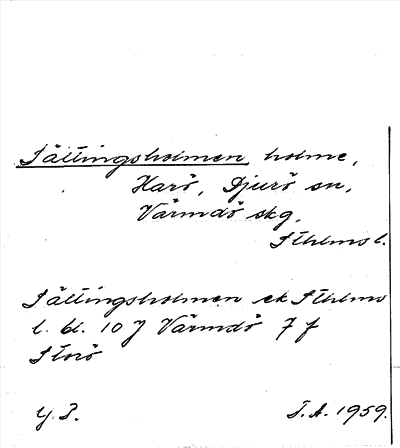 Sältingsholmen, holme,
Harö, Djurö sn,
Värmdö skg,
Sthlms l.
Sältingsholmen ek Sthlms
l. bl. 10 J Värmdö 7 f
Storö
T.A. 1959.